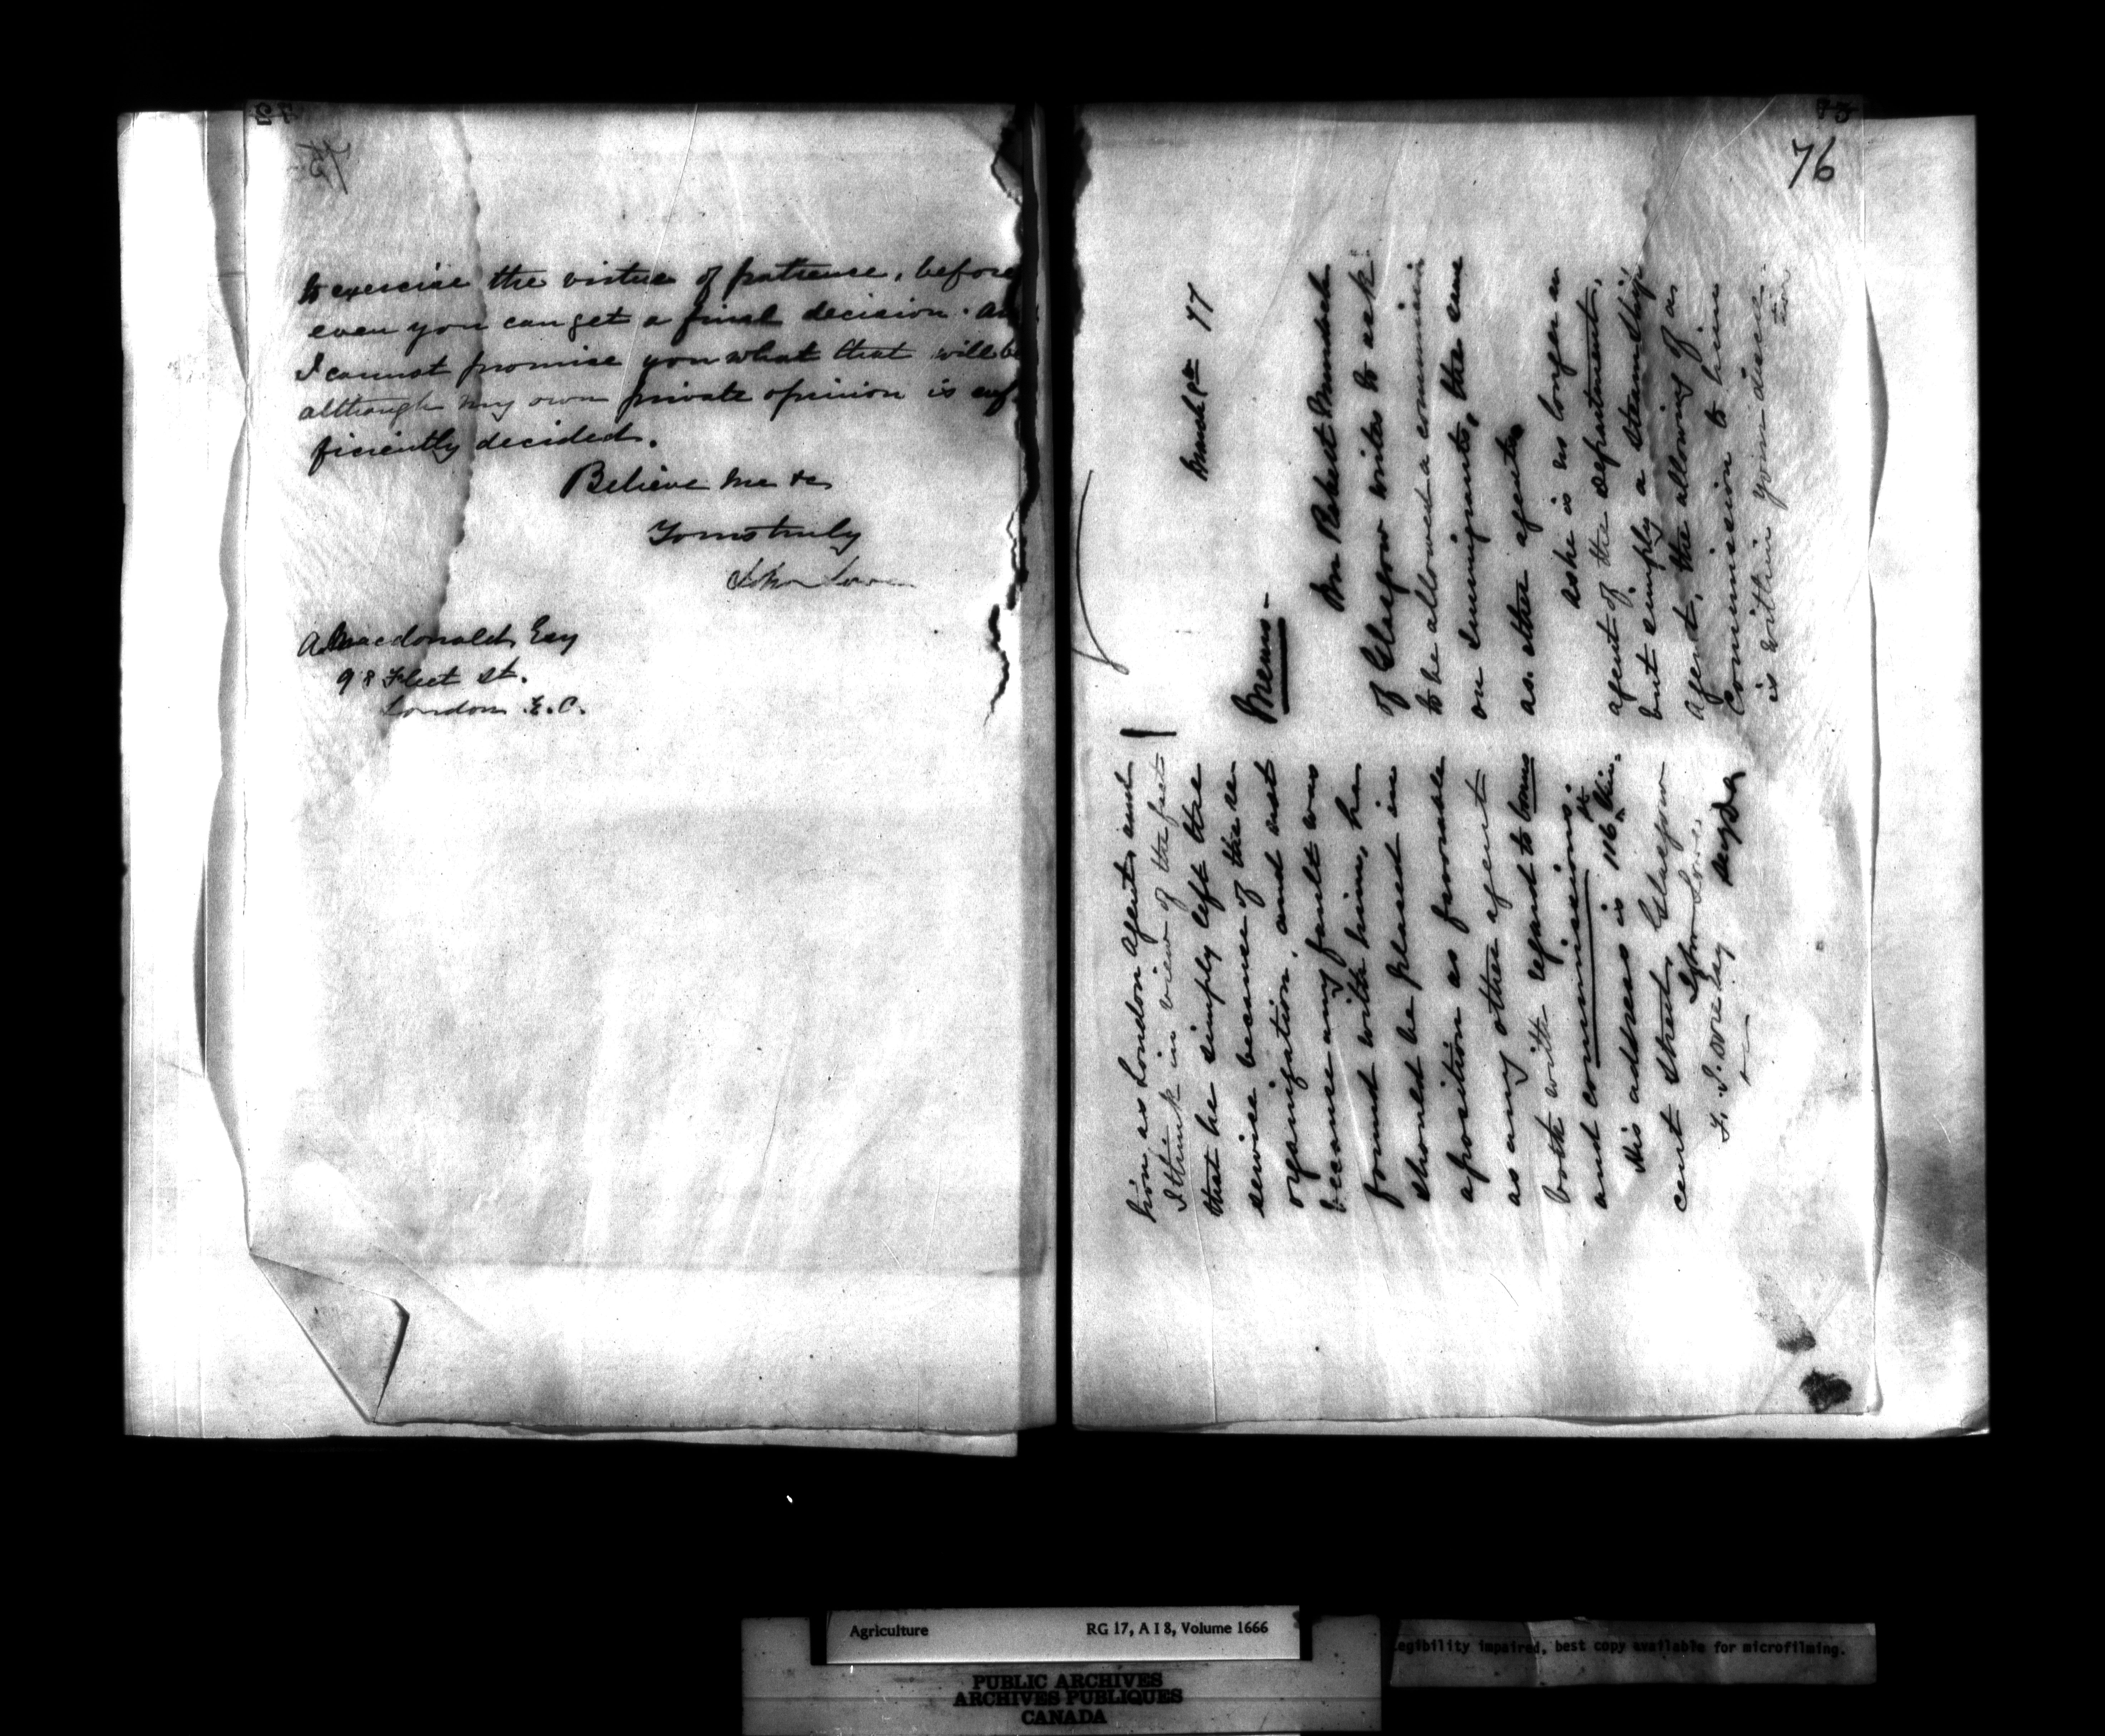 75
to exercise the virtue of patience, before
even you can get a final decision. And
I cannot promise you what that will be
although my own private opinion is suf-
ficiently decided.
Believe me &c
Yours truly
John Lowe
A. Macdonald Esq
98 Fleet St.
London E.C.
76
March 9th 77
Memo-
Mr Robert Murdoch
of Glasgow writes to ask
to be allowed a commission
on immigrants, the same
as other agents
As he is no longer an
agent of the department,
but simply a steamship
agent, the allowing of a
Commission to him
is within your discre-
tion
him as London Agent, and
I think in view of the fact
that he simply left the
service because of the re
organization, and not
because any fault was
found with him, he
should be placed in
a position as favourable
as any other agent
both with regard to bonus
and commissions.
His address is 116 St. Vin-
cent Street, Glasgow
John Lowe
Secy DA
F. J. Dore Esq
Agriculture RG 17, A I 8, Volume 1666
egibility impaired, best copy available for microfilming.
PUBLIC ARCHIVES
ARCHIVES PUBLIQUES
CANADA